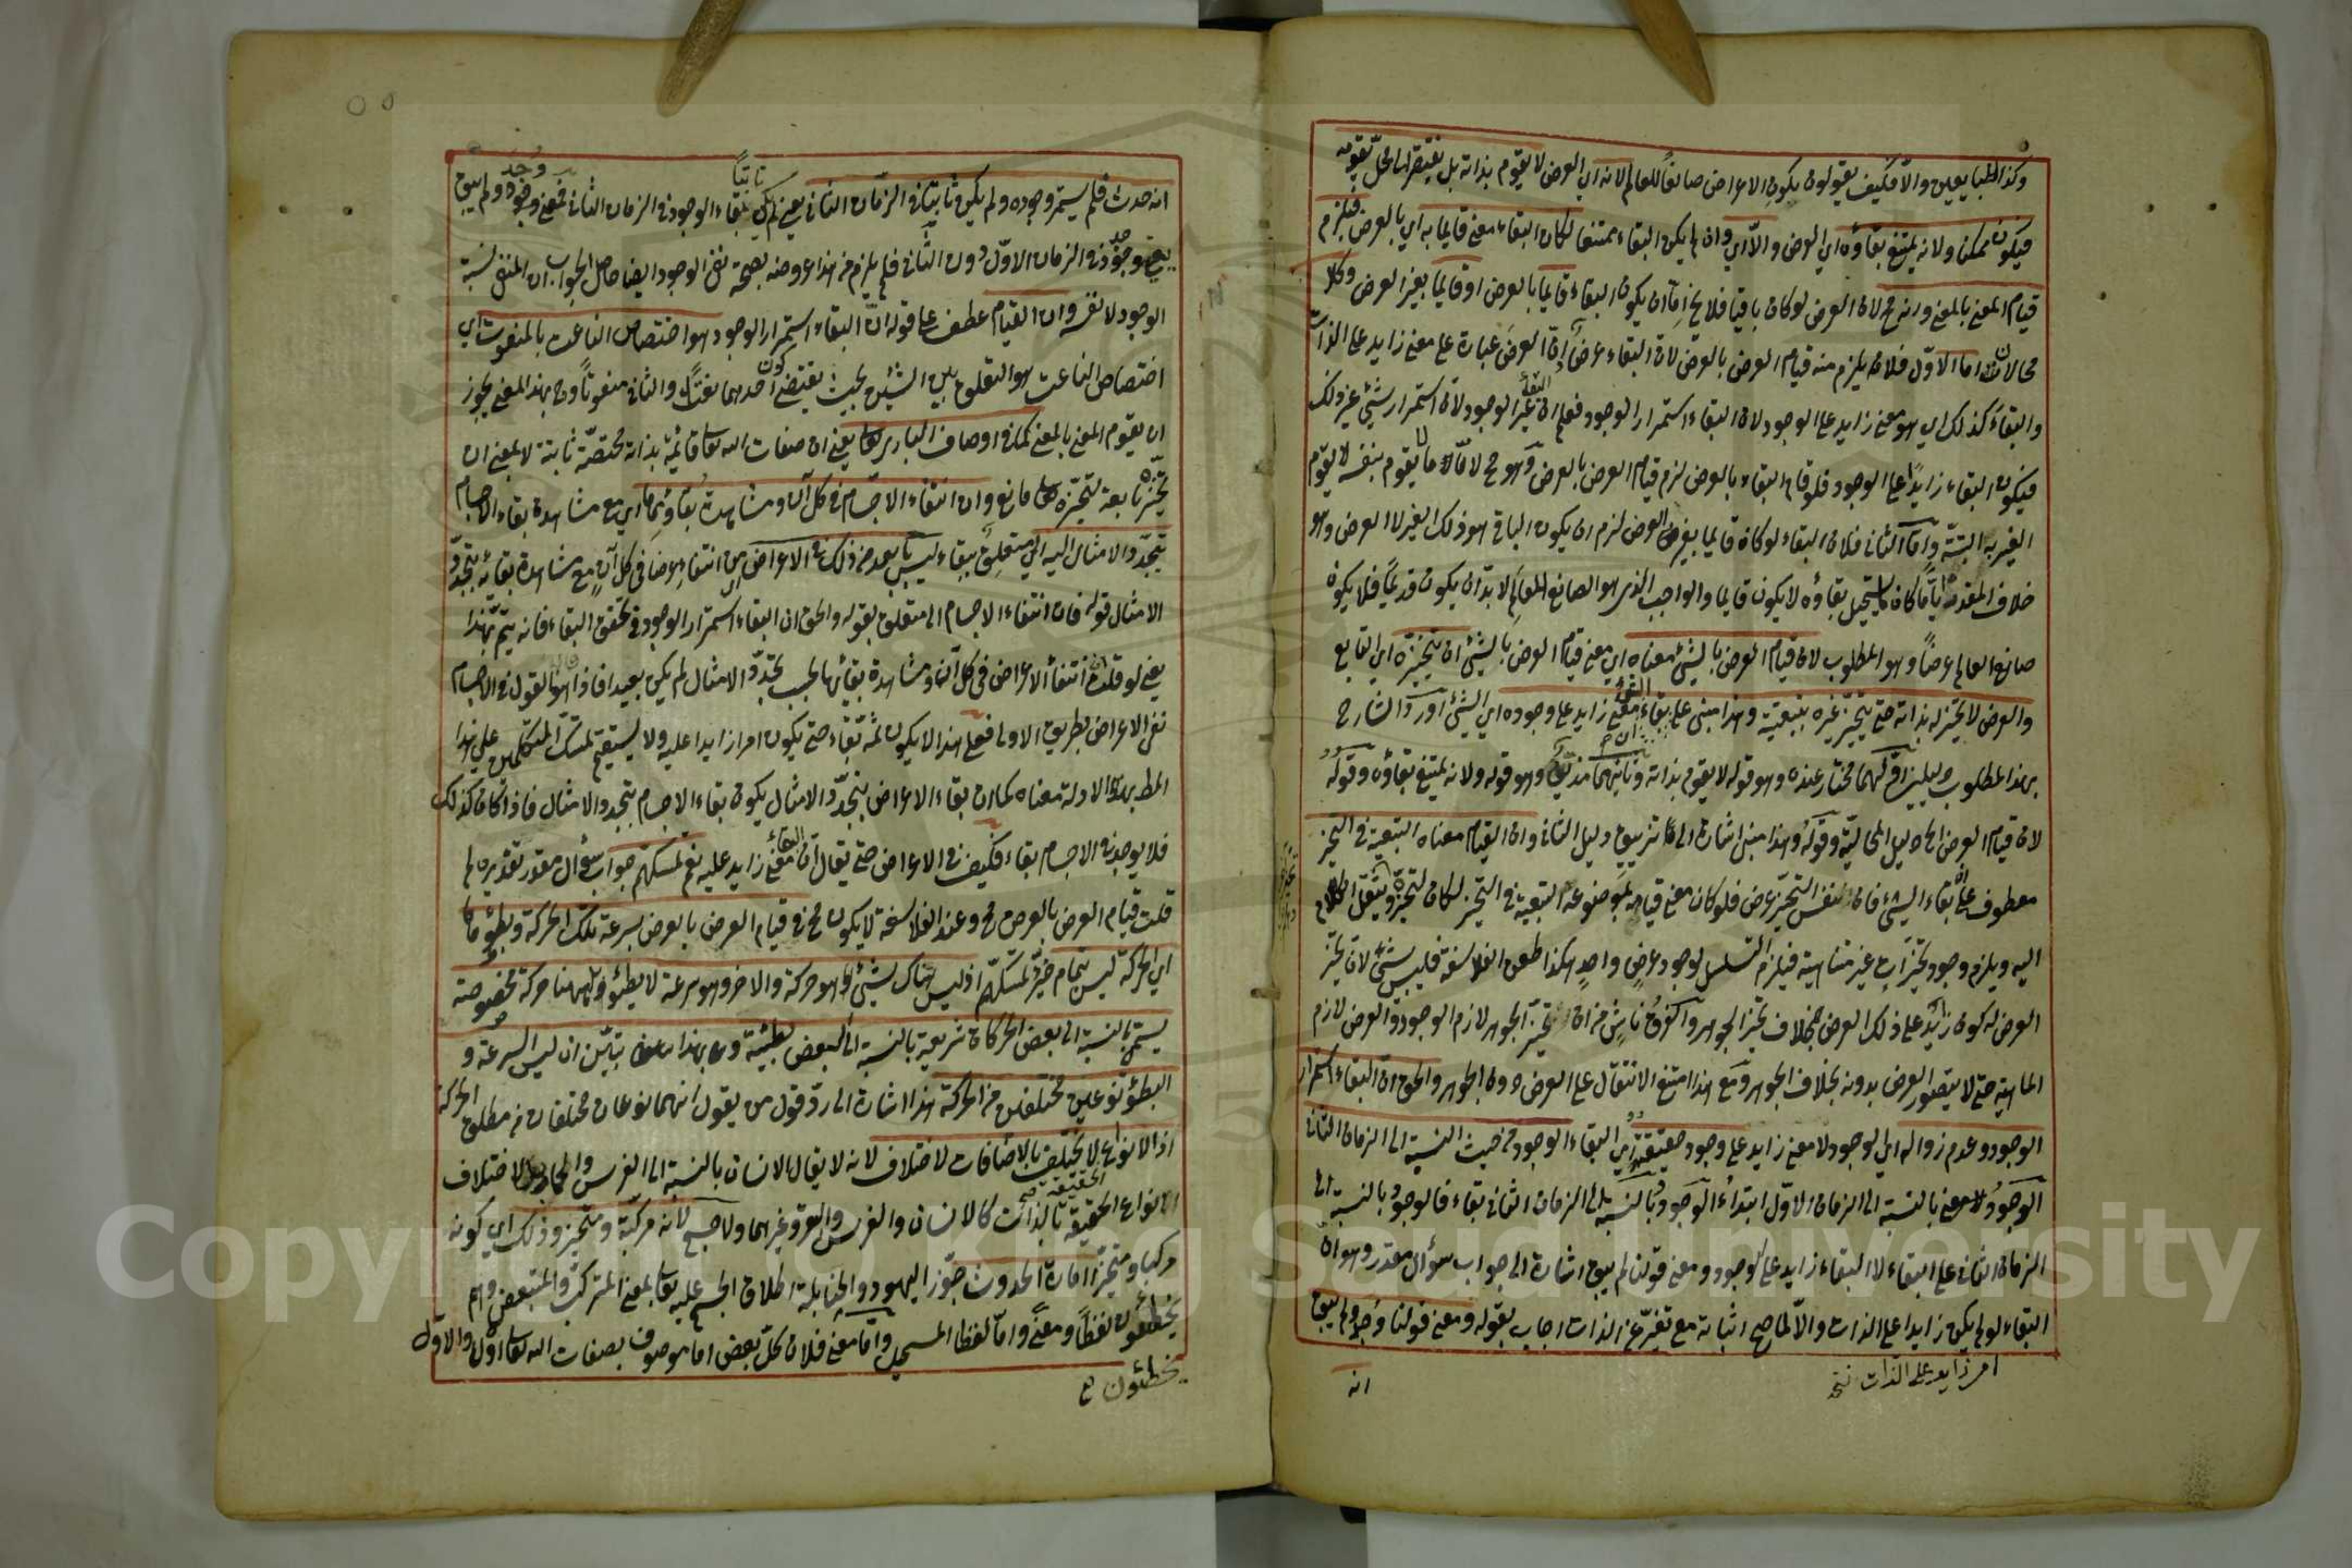 وكذا الطبايعيين والا فكيف يقولون بكون الاعراض صانعًا للعالم لانه اي العرض لا يقوم بذاته بل يفتقر الى محل يقومه
فيكون ممكنا ولانه يمتنع بقاؤه اي العرض والا اي وان لم يكن البقاء ممتنعا لكان البقاء معنى قايما به اي بالعرض فيلزم
قيام المعنى بالمعنى وانه مح لان العرض لو كان باقيا فلا يخ اما ان يكون البقاء قايما بالعرض او قايما بغير العرض وكلا
محالان اما الاول فلانه يلزم منه قيام العرض بالعرض لان البقاء عرض اذ العرض عبارة على معنى زايد على الذات
والبقاء كذلك اي هو معنى زايد على الوجود لان البقاء استمرار الوجود فعلم ان البقاء غير الوجود لان استمرار شئ غير ذلك
فيكون البقاء زايدًا على الوجود فلو قام البقاء بالعرض لزم قيام العرض بالعرض وهو مح لان ما لا يقوم بنفسه لا يقوم
الغير به البتة واما الثاني فلان البقاء لو كان قايما بغير العرض لزم ان يكون الباقي هو ذلك الغير لا العرض وهو
خلاف المقدر ايًا ما كان يستحيل بقاؤه لا يكون قايما والواجب الذي هو الصانع للعالم لا بد ان يكون قديمًا فلا يكون
صانع العالم عرضًا وهو المطلوب لان قيام العرض بالشئ معناه اي معنى قيام العرض بالشئ ان تحيزه اي التابع
والعرض لا تحيز له بذاته حتى يتحيز غيره بتبعيته وهذا مبنى على ان بقاء الشئ معنى زايد على وجوده اي الشئ اورد الشارح
بهذا المطلوب دليلين اولهما مختار عنده وهو قوله لا يقوم بذاته وثانيهما مذيف وهو قوله ولانه يمتنع بقاؤه وقوله
لان قيام العرض الى دليل المحالية وقوله وهذا مبنى اشارة الى تزييف دليل الثاني وان القيام معناه التبعية في التحيز
معطوف على ان بقاء الشئ فان نفس التحيز عرض فلو كان معنى قيامه بموضوعه التبعية في التحيز لكان لتحيزه وينقل الكلام
اليه ويلزم وجود تحيزات غير متناهية فيلزم التسلسل لوجود عرض واحد هكذا طعن الفلاسفة فليس بشئ لان تحيز
العرض له كون زايد على ذلك العرض بخلاف تحيز الجوهر والفرق ناش من ان تحيز الجوهر لازم الوجود والعرض لازم
الماهية حتى لا يتصور العرض بدونه بخلاف الجوهر ومع هذا امتنع الانتقال على العرض دون الجوهر والحق ان البقاء استمرار
الوجود وعدم زواله اي الوجود لا معنى زايد على وجود حقيقته اي البقاء الوجود من حيث النسبة الى الزمان الثاني
الوجود معنى بالنسبة الى الزمان الاول ابتداء الوجود وبالنسبة الى الزمان الثاني بقاء فالوجود بالنسبة الى
الزمان الثاني على البقاء لا البقاء زايد على الوجود ومعنى قولنا لم يبق اشارة الى جواب سؤال مقدر وهو ان
البقاء لو لم يكن زايدا على الذات والا لما صح اثباته مع تغير عن الذات اجاب بقوله ومعنى قولنا وجد ولم يبق
امر زايد على الذات نسخه
انه
انه حدث فلم يستمر وجوده ولم يكن ثابتا في الزمان الثاني يعني لم يكن ثابتًا بقاء الوجود في الزمان الثاني فمعنى وجد ولم يبق
يعني وجد في الزمان الاول دون الثاني فلم يلزم من هذا عروضه بصحة نفي الوجود ايضا حاصل الجواب ان المنفي نسبة
الوجود لا نفسه وان القيام عطف على قوله ان البقاء استمرار الوجود هو اختصاص الناعت بالمنعوت اي
اختصاص الناعت هو التعلق بين الشيئين بحيث يقتضي كون احدهما نعتًا والثاني منعوتًا وح بهذا المعنى يجوز
ان يقوم المعنى بالمعنى كما في اوصاف الباري تعالى يعني ان صفات الله تعالى قائمة بذاته مختصة ثابتة لا بمعنى ان
تحيزه تابعة لتحيزه تعالى مانع وان انتفاء الاجسام في كل آن ومشاهدة بقاؤها اي مع مشاهدة بقاء الاجسام
بتجدد الامثال اليه اي متعلق ببقاء ليس بابعد من ذلك في الاعراض من انتفاء عرضا في كل آن مع مشاهدة بقائه بتجدد
الامثال قوله فان انتفاء الاجسام الى متعلق بقوله والحق ان البقاء استمرار الوجود في تحقق البقاء فانه يتم بهذا
يعني لو قلت ان انتفاء الاعراض في كل آن ومشاهدة بقائها بحسب تجدد الامثال لم يكن بعيدا فاذا هو القول في الاجسام
نفي الاعراض بطريق الاولى فعلى هذا لا يكون ثمة بقاء حتى يكون امرا زايدا عليه ولا يستقيم تمسك المتكلمين على هذا
المط بهذه الادلة معناه كما ان بقاء الاعراض بتجدد الامثال يكون بقاء الاجسام بتجدد الامثال فاذا كان كذلك
فلا يوجد في الاجسام بقاء فكيف في الاعراض حتى يقال ان البقاء معنى زايد عليه نعم تمسكهم جواب سؤال مقدر تقديره لما
قلت قيام العرض بالعرض مح وعند الفلاسفة لا يكون مح في قيام العرض بالعرض بسرعة تلك الحركة وبطؤها
اي الحركة ليس بتمام خبر تمسكهم اذ ليس هناك شئ وهو حركة والاخر وهو سرعة لا بطؤ بل ههنا حركة مخصوصة
يسمى بالنسبة الى بعض الحركات سريعة بالنسبة الى البعض بطيئة وبهذا تبين ان ليس السرعة و
البطؤ نوعين مختلفين من الحركة هذا اشارة الى رد قول من يقول انهما نوعان مختلفان من مطلق الحركة
اذ الانواع لا يختلف بالاضافات لاختلاف لانه لا يقال الانسان بالنسبة الى الفرس والحمار لاختلاف
الانواع الحقيقة بالذات كالانسان والفرس والبقر وغيرهما ولا جسم لانه مركب ومتحيز وذلك اي كونه
مركبا ومتحيزا امارة الحدوث جوز اليهود والحنابلة اطلاق الجسم عليه تعالى بمعنى المتركب والمتبعض وهم
يخطئون لفظًا ومعنًى واما لفظا واما معنى فلان كل بعض اما موصوف بصفات الله تعالى اولا والاول
يخطئون ع
Copyright © King Saud University